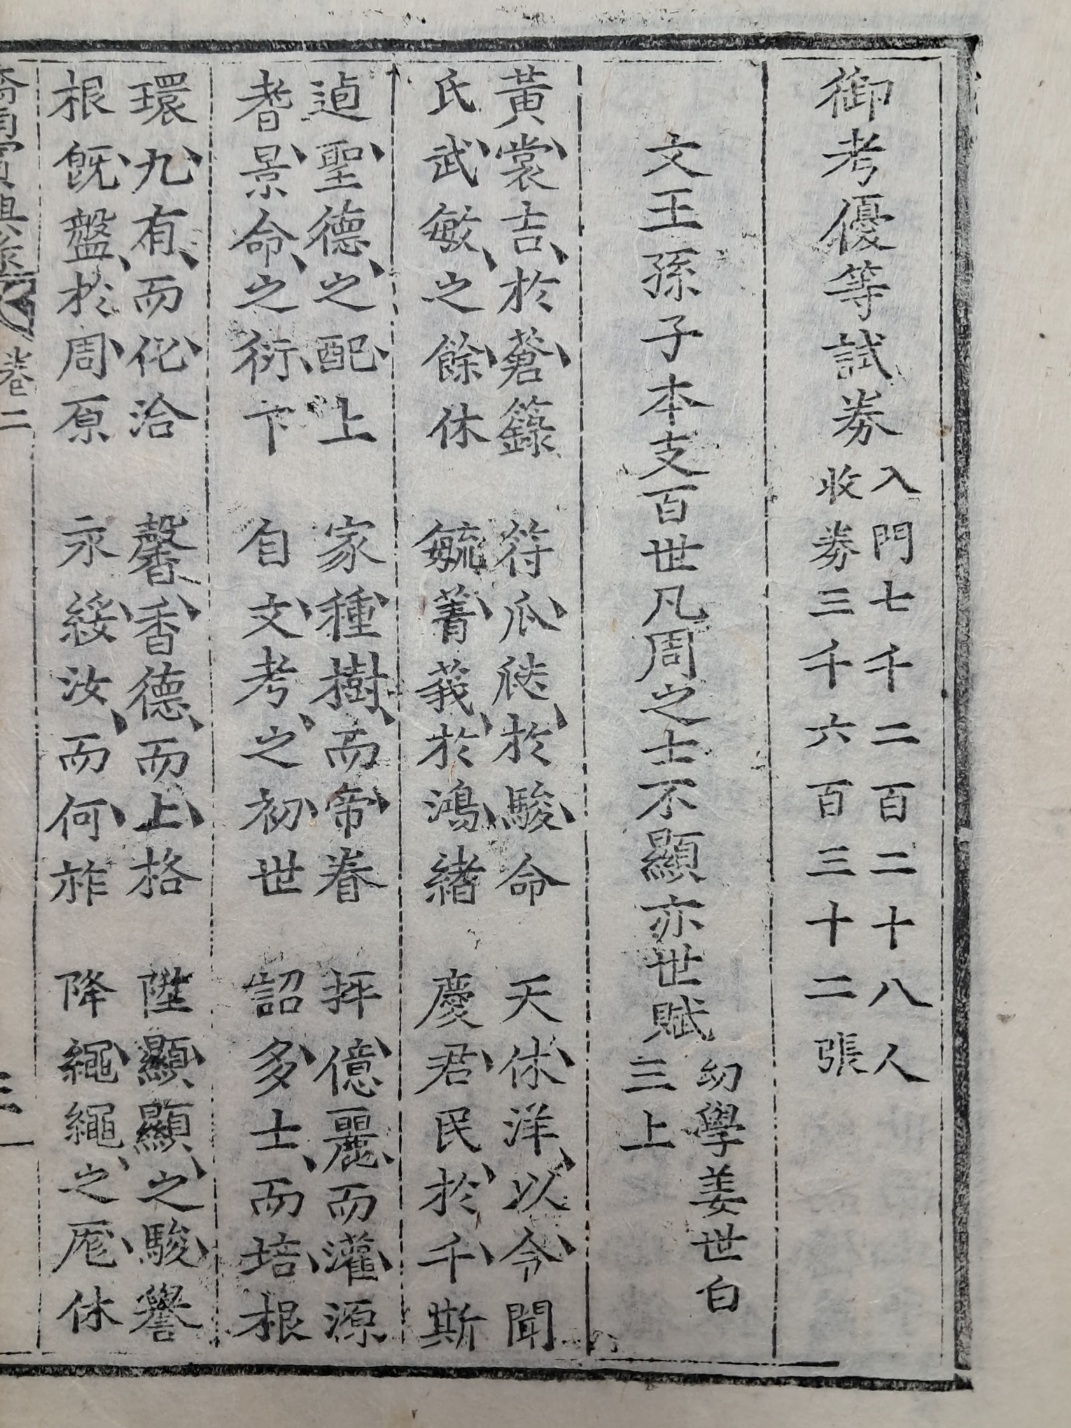 御考優等試券 入門七千二百二十八人
收券三千六百三十二張
文王孫子本支百世凡周之士不顯亦世賦 幼學姜世白
三上
黃裳吉於蒼籙 符瓜瓞於駿命 天休洋以令聞
氏武敏之餘休 毓菁莪於鴻緖 慶君民於千斯
逌聖德之配上 家種樹而帝眷 抨億麗而灌源
耆景命之衍卞 自文考之初世 詔多士而培根
環九有而化洽 馨香德而上格 陞顯顯之駿譽
根旣盤於周原 永綏汝而何祚 降繩繩之厖休
嶠南賓興錄 卷二